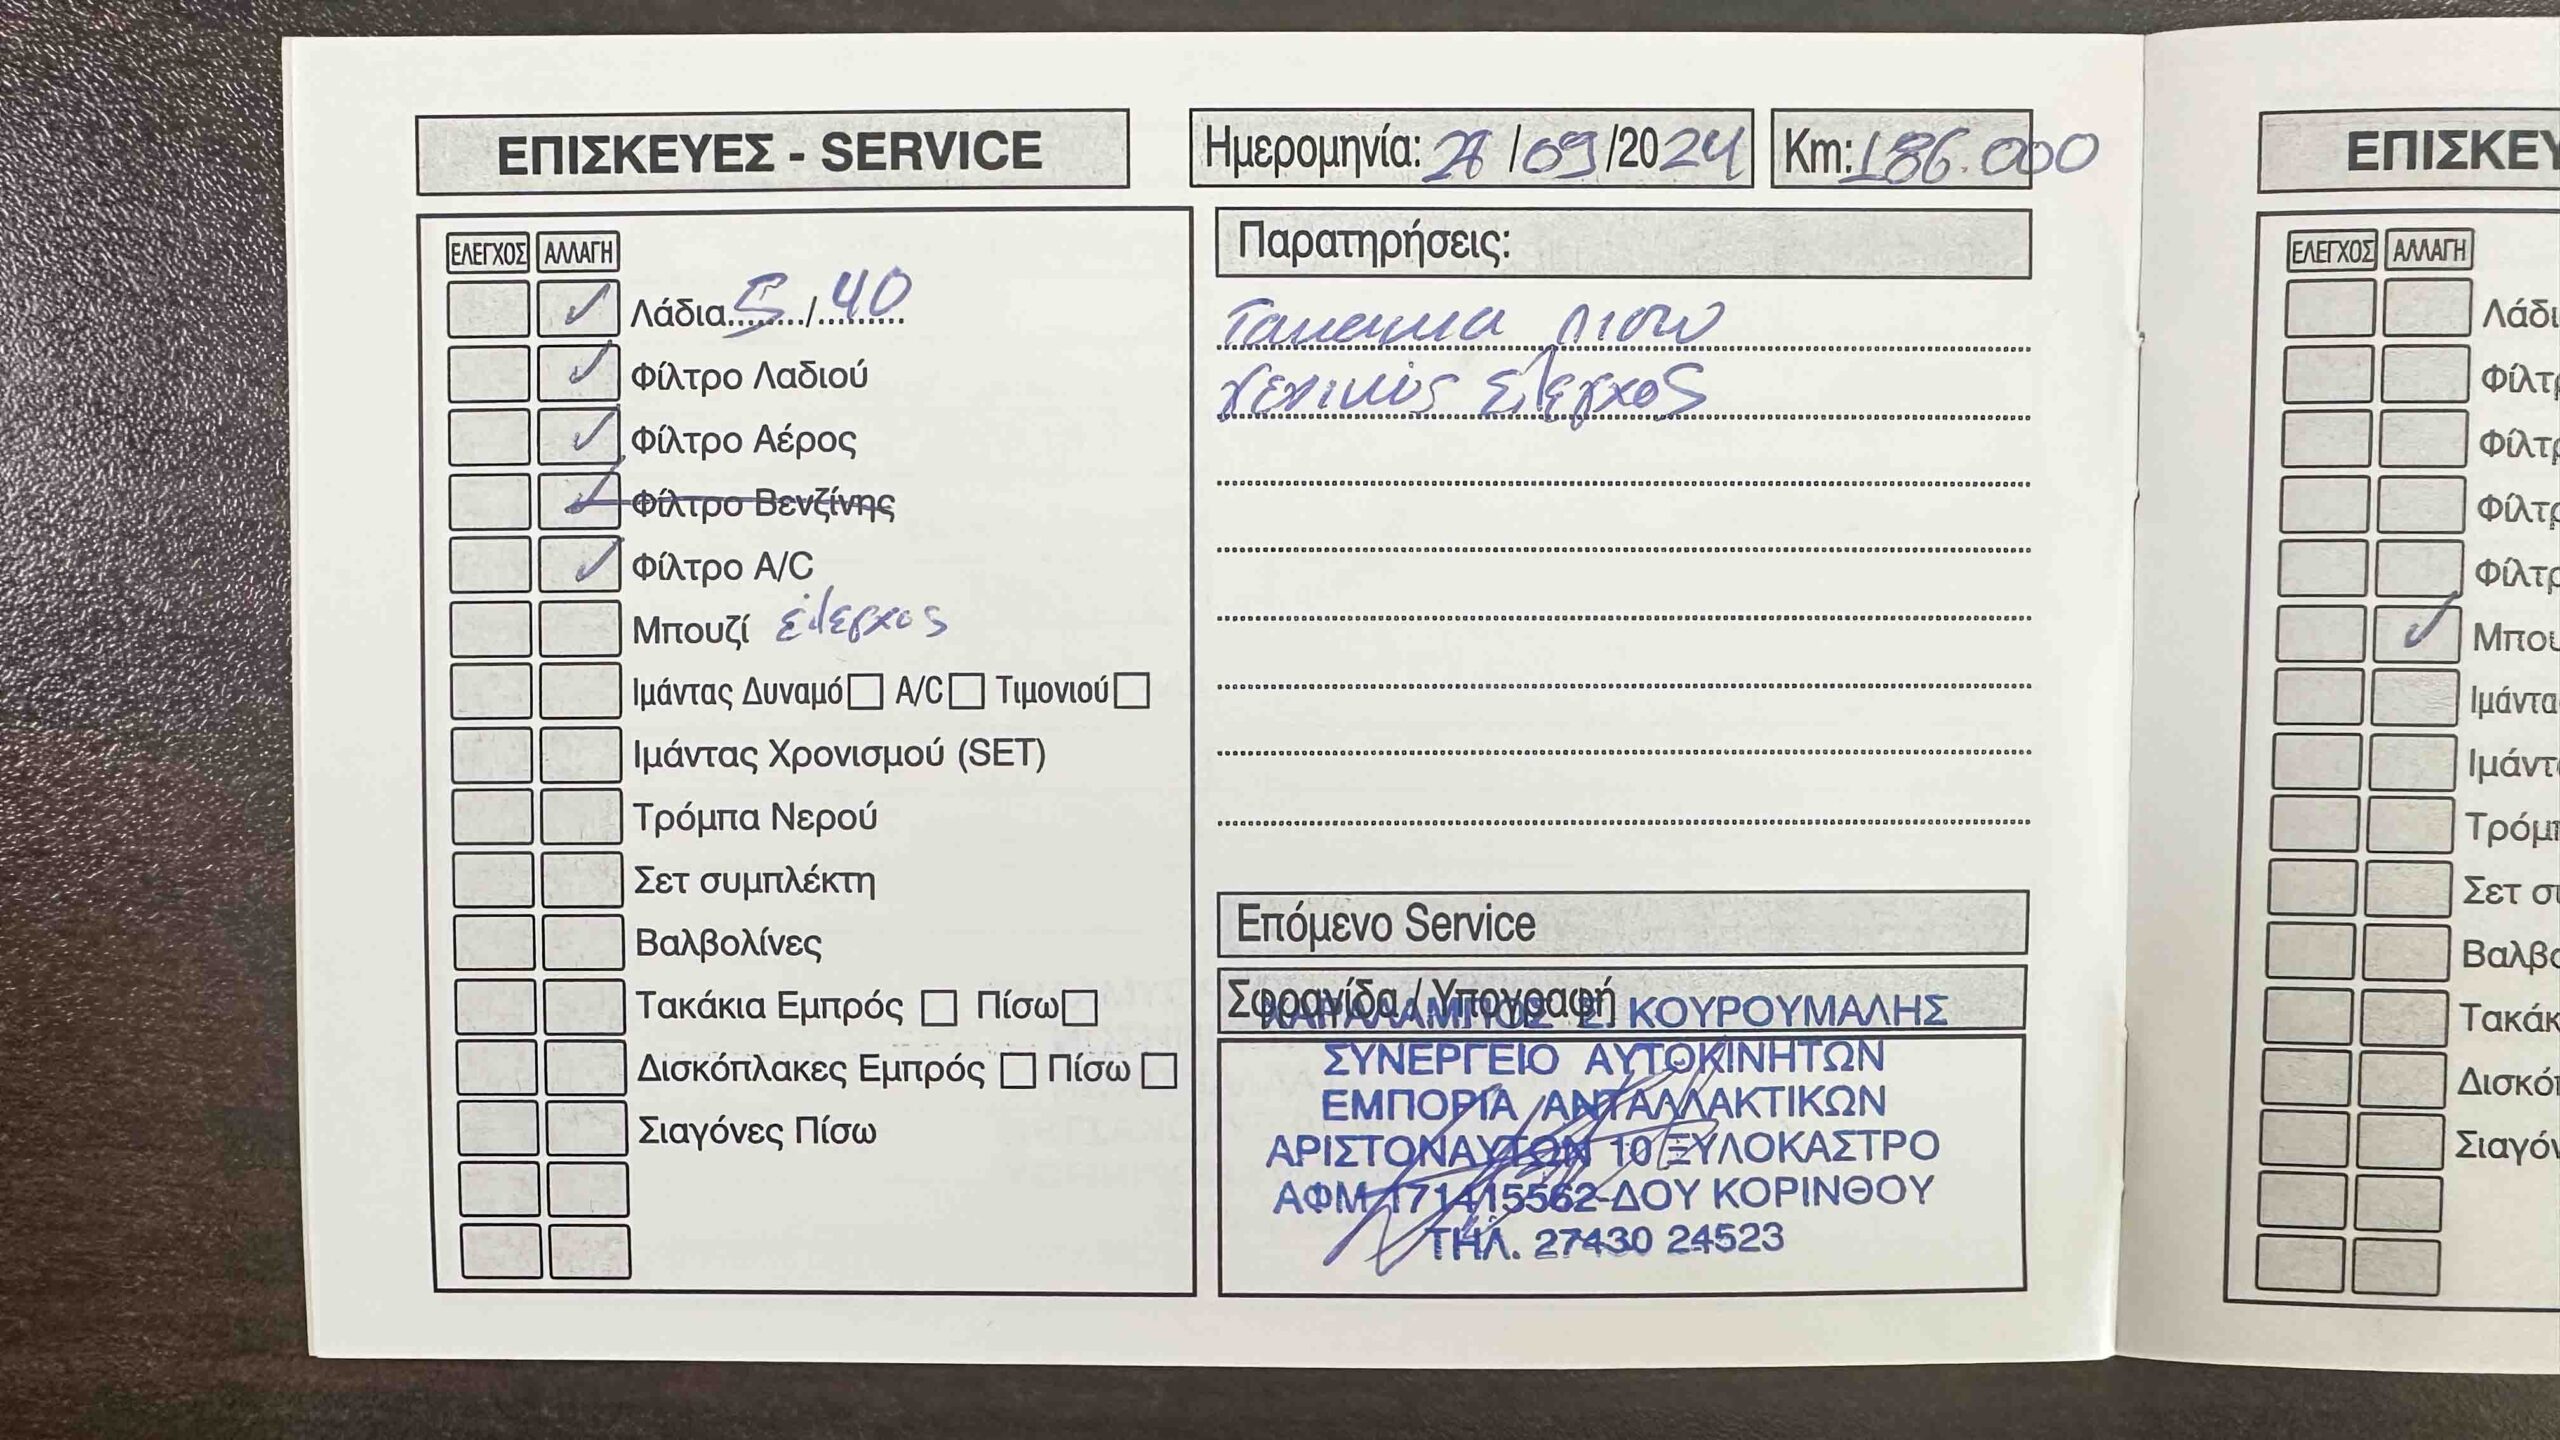 ΕΠΙΣΚΕΥΕΣ - SERVICE
Ημερομηνία: /09/2024
Km: 186.000
ΕΛΕΓΧΟΣ ΑΛΛΑΓΗ
✓ Λάδια 5/40
✓ Φίλτρο Λαδιού
✓ Φίλτρο Αέρος
✓ Φίλτρο Βενζίνης
✓ Φίλτρο A/C
Μπουζί έλεγχος
Ιμάντας Δυναμό A/C Τιμονιού
Ιμάντας Χρονισμού (SET)
Τρόμπα Νερού
Σετ συμπλέκτη
Βαλβολίνες
Τακάκια Εμπρός Πίσω
Δισκόπλακες Εμπρός Πίσω
Σιαγόνες Πίσω
Παρατηρήσεις:
Τακακια πισω
γενικός έλεγχος
Επόμενο Service
Σφραγίδα / Υπογραφή
ΧΑΡΑΛΑΜΠΟΣ Σ. ΚΟΥΡΟΥΜΑΛΗΣ
ΣΥΝΕΡΓΕΙΟ ΑΥΤΟΚΙΝΗΤΩΝ
ΕΜΠΟΡΙΑ ΑΝΤΑΛΛΑΚΤΙΚΩΝ
ΑΡΙΣΤΟΝΑΥΤΩΝ 10 ΞΥΛΟΚΑΣΤΡΟ
ΑΦΜ 171415562-ΔΟΥ ΚΟΡΙΝΘΟΥ
ΤΗΛ. 27430 24523
ΕΠΙΣΚΕΥ
ΕΛΕΓΧΟΣ ΑΛΛΑΓΗ
Λάδι
Φίλτρ
Φίλτρ
Φίλτρ
Φίλτρ
✓ Μπου
Ιμάντα
Ιμάντ
Τρόμπ
Σετ συ
Βαλβο
Τακάκ
Δισκόπ
Σιαγόν